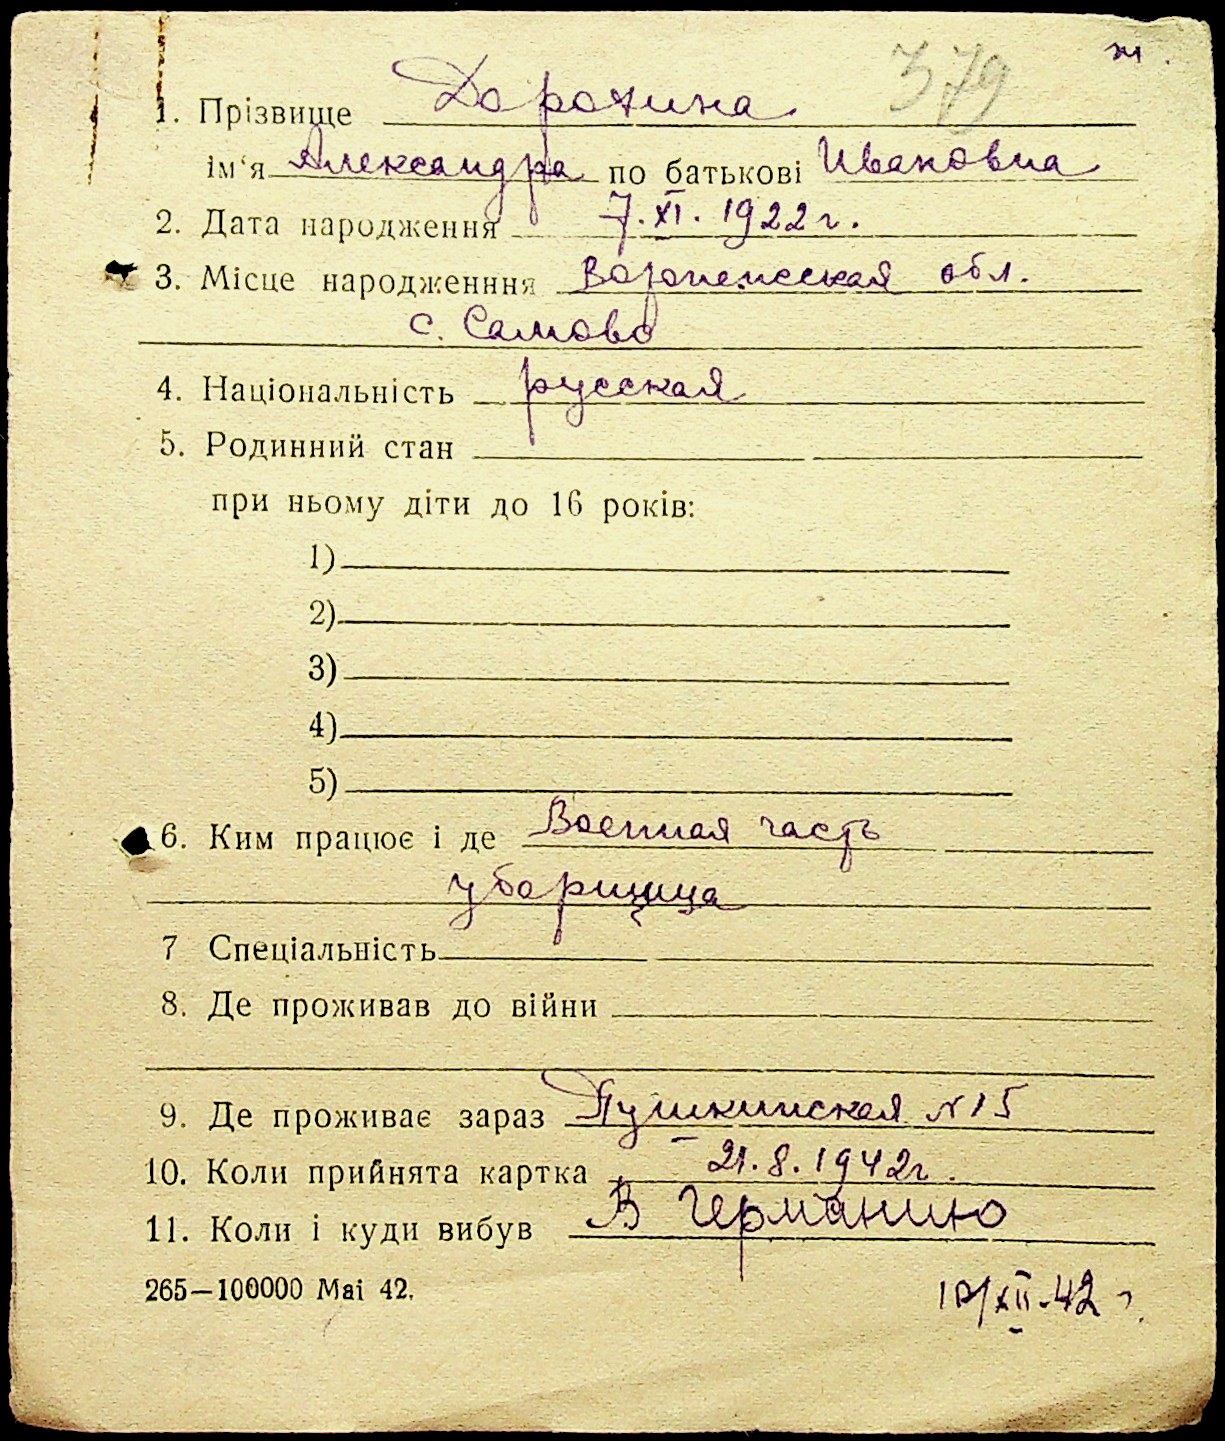 379
1. Прізвище Дорохина
ім'я Александра по батькові Ивановна
2. Дата народження 7.XI.1922 г.
3. Місце народженння Воронежская обл.
с. Самово
4. Національність русская
5. Родинний стан
при ньому діти до 16 років:
1)
2)
3)
4)
5)
6. Ким працює і де Военная часть
уборщица
7 Спеціальність
8. Де проживав до війни
9. Де проживає зараз Пушкинская N 15
10. Коли прийнята картка 21.8.1942 г.
11. Коли і куди вибув В Германию
265—100000 Mai 42. XII-42 г.